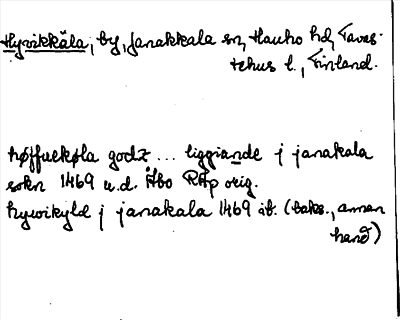 Hyvikkälä, by, Janakkala sn, Hauho hd, Tavas-
tehus l., Finland.
høffuekøla godz ... liggiande j janakala
sokn 1469 u.d. Åbo RAp orig.
hyvikylä j janakala 1469 ib. (baks., annan
hand)